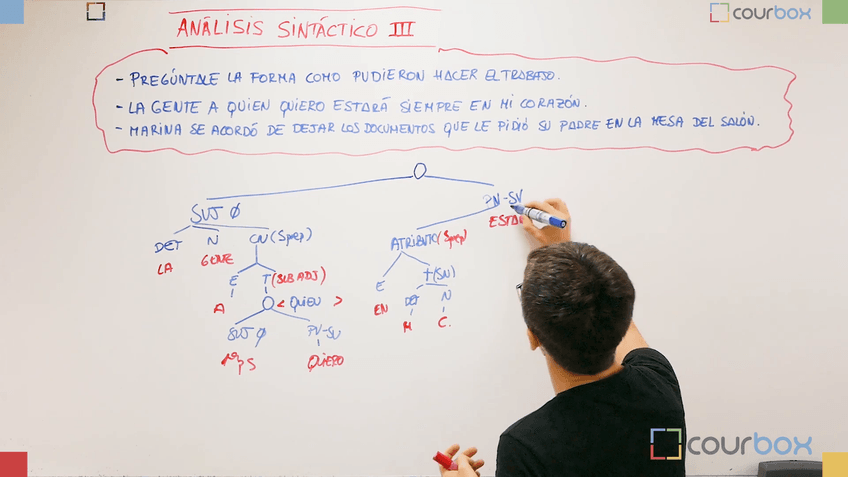 courbox
ANÁLISIS SINTÁCTICO III
- PREGÚNTALE LA FORMA COMO PUDIERON HACER EL TRABAJO.
- LA GENTE A QUIEN QUIERO ESTARÁ SIEMPRE EN MI CORAZÓN.
- MARINA SE ACORDÓ DE DEJAR LOS DOCUMENTOS QUE LE PIDIÓ SU PADRE EN LA MESA DEL SALÓN.
O
SUJ Ø PN-SV
ESTA
DET N CN (Sprep) ATRIBUTO (Sprep)
LA GENTE
E T (SUB ADJ) E T (SN)
A O < QUIEN > EN DET N
SUJ Ø PV-SV M C.
1ª p S QUIERO
courbox